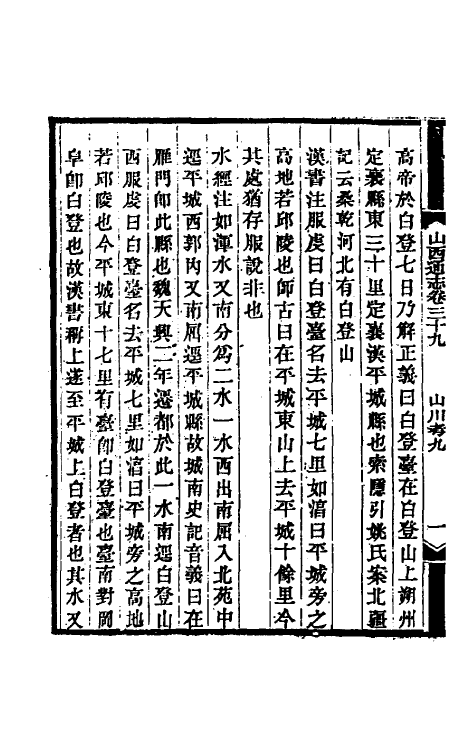 山西通志卷三十九　山川考九　一
高帝於白登七日乃解正義曰白登臺在白登山上朔州
定襄縣東三十里定襄漢平城縣也索隱引姚氏案北疆
記云桑乾河北有白登山
漢書注服虔曰白登臺名去平城七里如湻曰平城旁之
高地若邱陵也師古曰在平城東山上去平城十餘里今
其處猶存服說非也
水經注如渾水又南分爲二水一水西出南屈入北苑中
逕平城西郭內又南屈逕平城縣故城南史記音義曰在
雁門卽此縣也魏天興二年遷都於此一水南逕白登山
西服虔曰白登臺名去平城七里如湻曰平城旁之高地
若邱陵也今平城東十七里有臺卽白登臺也臺南對岡
阜卽白登也故漢書稱上遂至平城上白登者也其水又